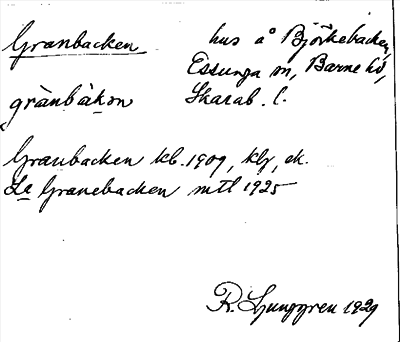 Granbacken hus å Björkebacken,
Essunga sn, Barne hd,
grànbàkən Skarab. l.
Granbacken kb. 1909, klg, ek.
La Granebacken mtl 1925
R. Ljunggren 1929